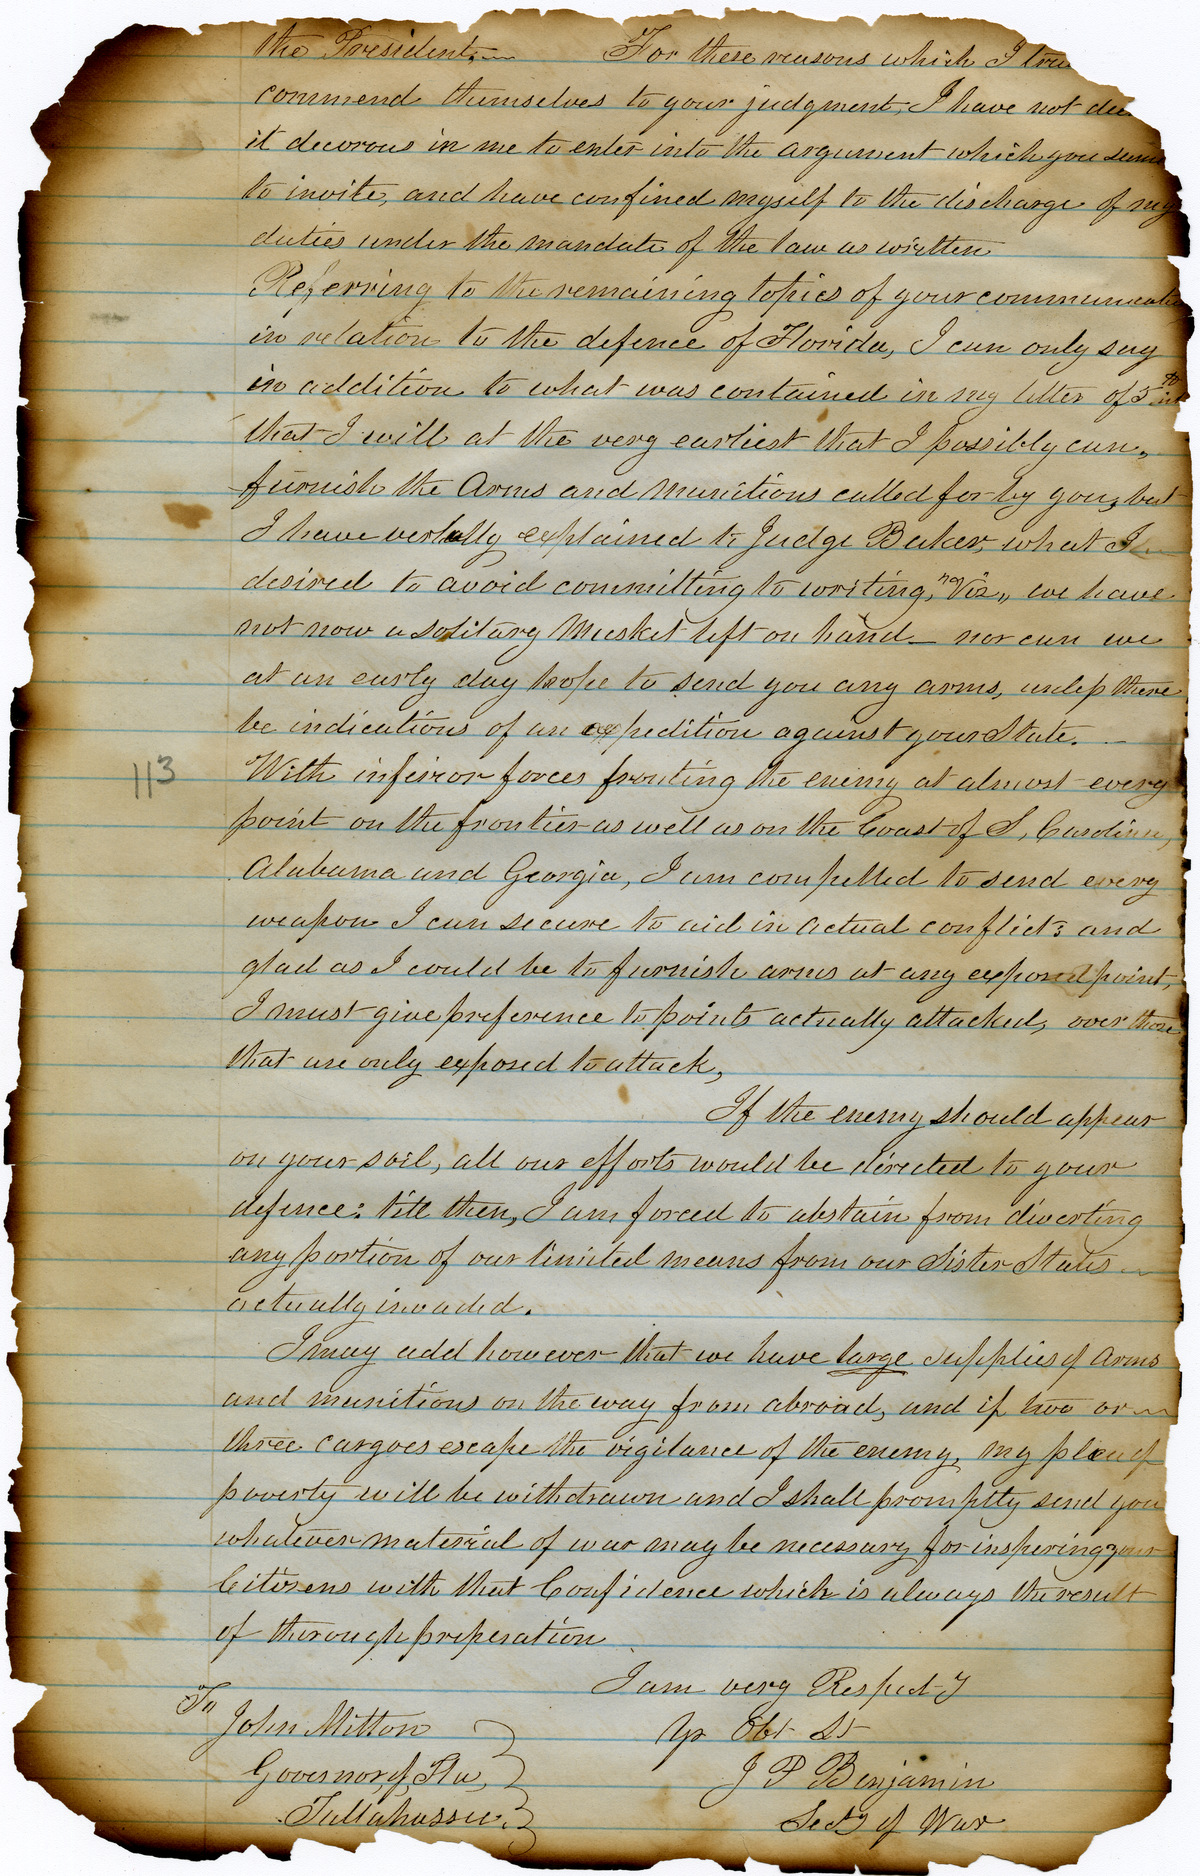 the President. For these reasons which I tru
commend themselves to your judgment, I have not dee
it decorous in me to enter into the argument which you seem
to invite, and have confined myself to the discharge of my
duties under the mandate of the law as written
Referring to the remaining topics of your communicatio
in relation to the defence of Florida, I can only say
in addition to what was contained in my letter of 5th
that I will at the very earliest that I possibly can,
furnish the Arms and Munitions called for by you, but
I have verbally explained to Judge Baker, what I
desired to avoid committing to writing, "Viz" we have
not now a solitary Musket left on hand — nor can we
at an early day hope to send you any arms, unless there
be indications of an expedition against your State.
With inferior forces fronting the enemy at almost every
113
point on the frontier as well as on the Coast of S, Carolina,
Alabama and Georgia, I am compelled to send every
weapon I can secure to aid in actual conflict; and
glad as I could be to furnish arms at any exposed point,
I must give preference to points actually attacked, over those
that are only exposed to attack,
If the enemy should appear
on your soil, all our efforts would be directed to your
defence: till then, I am forced to abstain from diverting
any portion of our limited means from our Sister States
actually invaded.
I may add however that we have large supplies of Arms
and munitions on the way from abroad, and if two or
three cargoes escape the vigilance of the enemy, my plea of
poverty will be withdrawn and I shall promptly send you
whatever material of war may be necessary for inspering your
Citizens with that Confidence which is always the result
of thorough preperation
I am very Respect-y
Yr Obt St
J P Benjamin
Secty of War
To
John Milton
Governor, of, Fla,
Tallahassee.